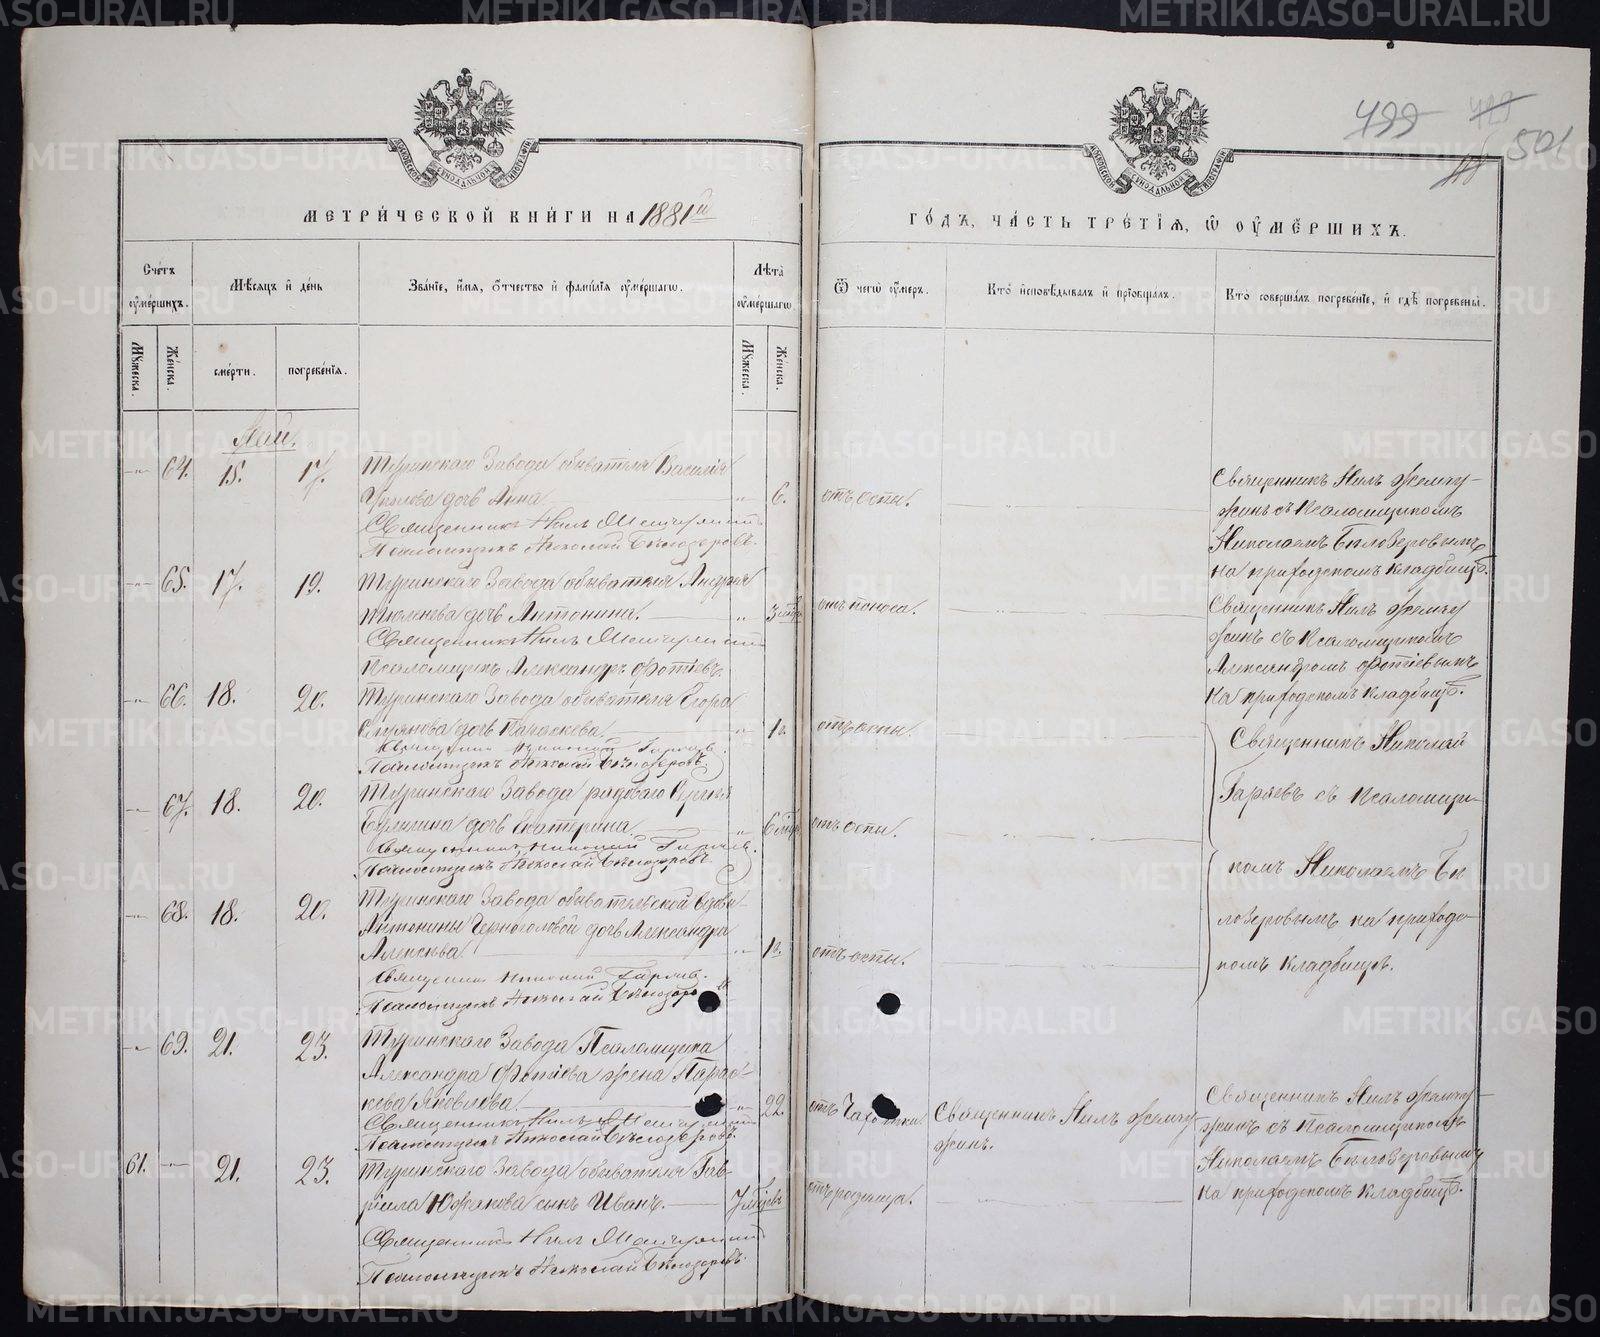 499 489 501
МОСКОВСКОЙ СѴНОДАЛЬНОЙ ТИПОГРАФІИ
МОСКОВСКОЙ СѴНОДАЛЬНОЙ ТИПОГРАФІИ
МЕТРИЧЕСКОЙ КНИГИ НА 1881й
ГОДЪ, ЧАСТЬ ТРЕТІЯ, Ѿ ОУМЕРШИХЪ.
Счетъ оумершихъ.
Мѣсяцъ и день
Званіе, имя, отчество и фамилія оумершагѡ.
Лѣта оумершагѡ
Ѿ чегѡ оумеръ.
Кто исповѣдывалъ и пріобщалъ.
Кто совершалъ погребеніе, и гдѣ погребены.
Мужеска.
Женска.
смерти.
погребенія.
Мужеска.
Женска.
Май.
64. 15. 17. Туринскаго Завода обывателя Василія
дочь Анна 6. отъ оспы.
Священникъ Нилъ
Псаломщикъ Николай Бѣлозеровъ.
Священникъ Нилъ Жемчу-
жинъ съ Псаломщикомъ
Николаемъ Бѣлозеровымъ
на приходскомъ кладбищѣ.
65. 17. 19. Туринскаго Завода обывателя Андрея
Тюленева дочь Антонина. 3 отъ поноса.
Священникъ Нилъ
Псаломщикъ Александръ Фотіевъ.
Священникъ Нилъ Жемчу
жинъ съ Псаломщикомъ
Александромъ Фотіевымъ
на приходскомъ кладбищѣ.
66. 18. 20. Туринскаго Завода обывателя Егора
дочь Параскева 1г. отъ оспы.
Священникъ Николай Гаряевъ.
Псаломщикъ Николай Бѣлозеровъ
67. 18. 20. Туринскаго Завода рядоваго Сергія
Булыгина дочь Екатерина. 6 отъ оспы.
Священникъ Николай Гаряевъ.
Псаломщикъ Николай Бѣлозеровъ
68. 18. 20. Туринскаго Завода обывательской вдовы
Антонины Черноголовой дочь Александра
Алексѣева 1г. отъ оспы.
Священникъ Николай Гаряевъ.
Псаломщикъ Николай Бѣлозеровъ
Священникъ Николай
Гаряевъ съ Псаломщи-
комъ Николаемъ Бѣ
лозеровымъ на приходс
комъ кладбищѣ.
69. 21. 23. Туринскаго Завода Псаломщика
Александра Фотіева жена Парас-
кева Яковлева 22. отъ Чахотки. Священникъ Нилъ Жемчу-
жинъ.
Священникъ Нилъ
Псаломщикъ Николай Бѣлозеровъ.
61. 21. 23. Туринскаго Завода обывателя Гав-
ріила Южакова сынъ Иванъ. 7 отъ родимца.
Священникъ Нилъ
Псаломщикъ Николай Бѣлозеровъ.
Священникъ Нилъ Жемчу-
жинъ съ Псаломщикомъ
Николаемъ Бѣлозеровымъ
на приходскомъ кладбищѣ.
METRIKI.GASO-URAL.RU